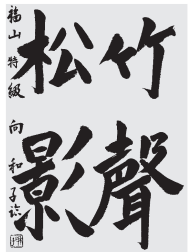 竹聲
松影
福山 特級 向 和子